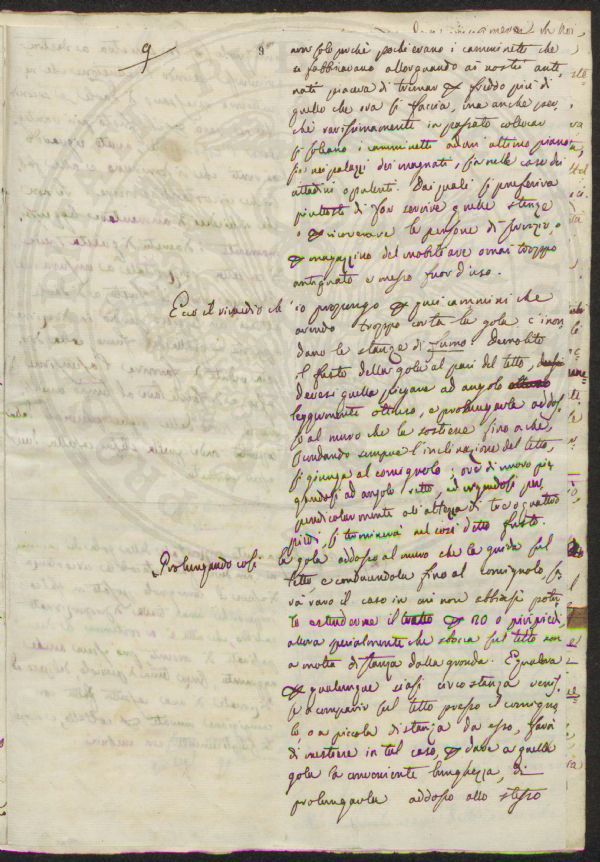 9
9
non solo perchè pochi erano i camminetti che
si fabbricavano allorquando ai nostri ante-
nati piaceva di tremar di freddo più di
quello che ora si faccia, ma anche per-
chè rarissimamente in passato collocar
si soleano i camminetti ad un ultimo piano
sia nei palazzi dei magnati, sia nelle case dei
cittadini opulenti. Dai quali si preferiva
piuttosto di far servire quelle stanze
a ricoverare le persone di servizio o
di magazzino del mobiliare ormai troppo
antiquato e messo fuor d'uso.
Ecco il rimedio ch' io propongo per quei cammini che
avendo troppo corta la gola c'inon-
dano le stanze di fumo. Demolito
il fusto della gola al pari del tetto,
devesi quella piegare ad angolo
leggermente ottuso, e prolungarla addos-
so al muro che la sostiene sino a che,
secondando sempre l'inclinazione del tetto,
si giunga al comignolo; ove di nuovo pie-
gandosi ad angolo retto, ed ergendosi per-
pendicolarmente all'altezza di tre o quattro
piedi, si terminerà nel così detto fusto.
Prolungando così la gola addosso al muro che la guida sul
tetto, e conducendola fino al comignolo, sa-
rà raro il caso in cui non abbiasi potu-
to estenderne il tratto di 20 o più piedi
allora specialmente che sbocia sul tetto non
a molta distanza dalla gronda. E qualora
per qualunque siasi circostanza venis-
se a comparir sul tetto presso il comigno-
lo, o a piccola distanza da esso, sarà
di mestiere in tal caso, per dare a quella
gola la conveniente lunghezza, di
prolungarla addosso allo stesso